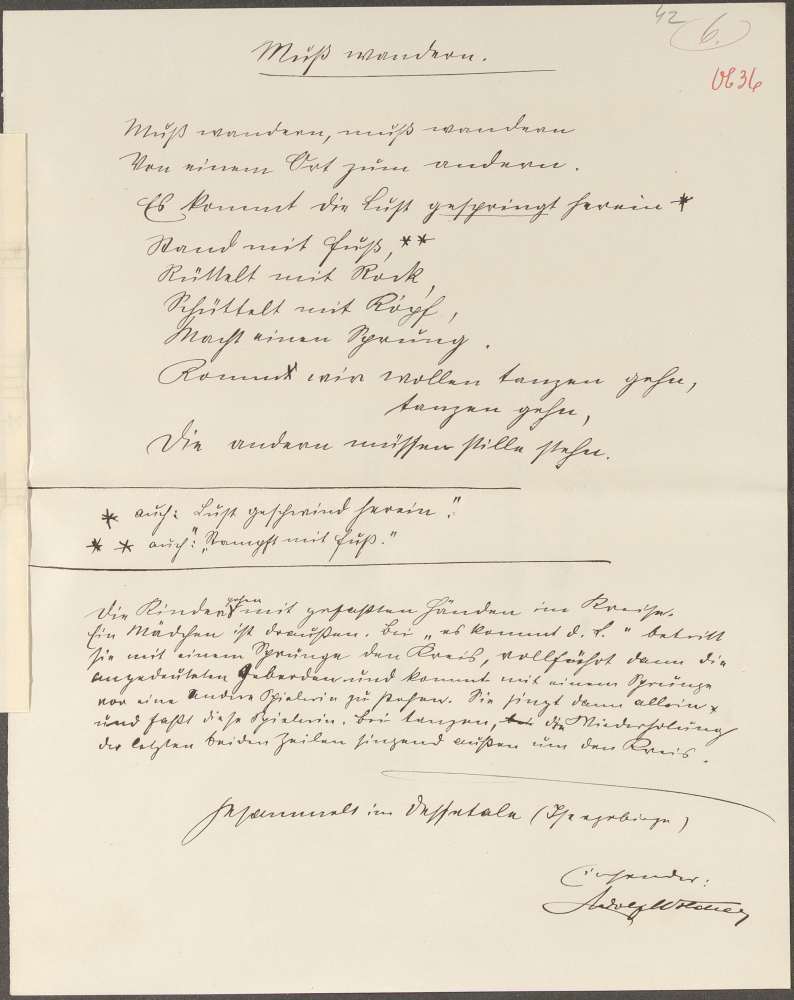 42 6.
Vb 36
Muß wandern.
Muß wandern, muß wandern
Von einem Ort zum andern.
Es kommt die Lust gespringt herein *
Stand mit Fuß, **
Rüttelt mit Rock,
Schüttelt mit Kopf,
Macht einen Sprung.
Kommt wir wollen tanzen gehn,
tanzen gehn,
Die andern müssen stille stehn.
* auch: Lust geschwind herein."
** auch: "Stampft mit Fuß."
Die Kinder gehen mit gefaßten Händen im Kreise.
Ein Mädchen ist draußen. Bei „es kommt d. L." betritt
sie mit einem Sprunge den Kreis, vollführt dann die
angedeuteten Geberden und kommt mit einem Sprunge
vor eine andere Spielerin zu stehen. Sie singt dann allein
und faßt diese Spielerin. Beide tanzen, die Wiederholung
der letzten beiden Zeilen singend außen um den Kreis.
Gesammelt im Dessetale (Isergebirge)
Einsender:
Adolf